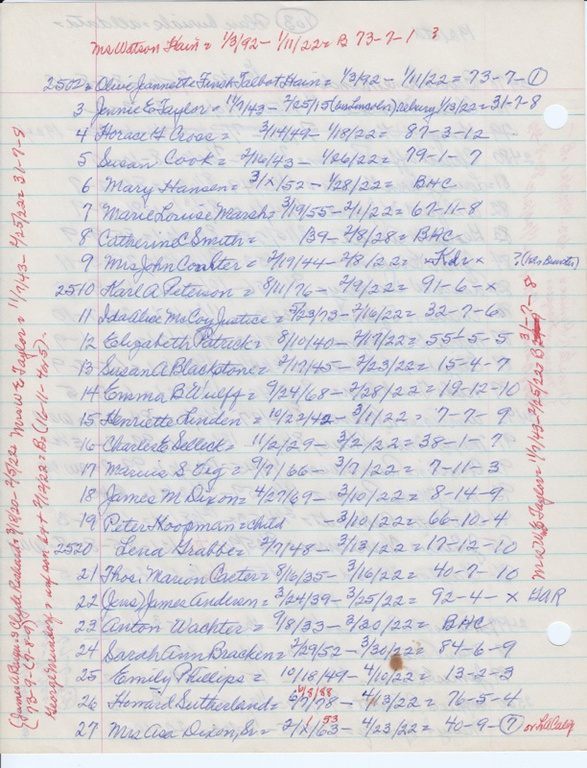 Mrs Watson Hain = 1/3/92 - 1/11/22 = B 73-7-1 3
2502 = Olive Jeannette Finch Talbot Hain = 1/3/92 - 1/11/22 = 73-7-①
3 Jennie E Taylor = 11/7/43 - 2/25/15 (as Lincoln) reburg 1/13/22 = 31-7-8
4 Horace H Cross = 3/14/49 - 1/18/22 = 87-3-12
5 Susan Cook = 2/16/43 - 1/26/22 = 79-1-7
6 Mary Hansen = 3/x/52 - 1/28/22 = BHC
7 Marie Louise Marsh = 3/19/55 - 2/1/22 = 67-11-8
8 Catherine C Smith = 139 - 2/8/28 = BHC
9 Mrs John Coulter = 2/17/44 - 2/8/22 = x Kd x x ?
2510 Karl A Peterson = 8/11/76 - 2/9/22 = 91-6-x
11 Ida Alice McCoy Justice = 5/23/73 - 2/16/22 = 32-7-6
12 Elizabeth Patrick = 8/10/40 - 2/17/22 = 55-5-5
13 Susan A Blackstone = 2/17/45 - 2/23/22 = 15-4-7
14 Emma B Wulff = 9/24/68 - 2/28/22 = 19-12-10
15 Henriette Linden = 10/22/42 - 3/1/22 = 7-7-9
16 Charles E Sellick = 11/2/29 - 3/2/22 = 38-1-7
17 Marcus S Eig = 9/7/66 - 3/7/22 = 7-11-3
18 James M Dixon = 4/27/69 - 3/10/22 = 8-14-9
19 Peter Koopman = child - 3/10/22 = 66-10-4
2520 Lena Grabbe = 2/7/48 - 3/13/22 = 17-12-10
21 Thos. Marion Carter = 8/16/35 - 3/16/22 = 40-7-10
22 (Jens) James Andersen = 3/24/39 - 3/25/22 = 92-4-x HAR
23 Anton Wachter = 9/8/33 - 3/20/22 = BHC
24 Sarah Ann Bracken = 2/29/52 - 3/30/22 = 84-6-9
25 Emily Phillips = 10/18/49 - 4/10/22 = 13-2-3
26 Howard Sutherland = 6/7/78 - 4/13/22 = 76-5-4
27 Mrs Asa Dixon, Sr = 2/x/63 - 4/23/22 = 40-9-⑦ or
53
Mrs W E Taylor = 11/7/43 - 2/25/22 = 31-7-9
George = infant son b+ 2/12/22 = B (16-11-4 or 5)
Mrs W E Taylor = 11/7/43 - 2/25/22 B 31-7-8